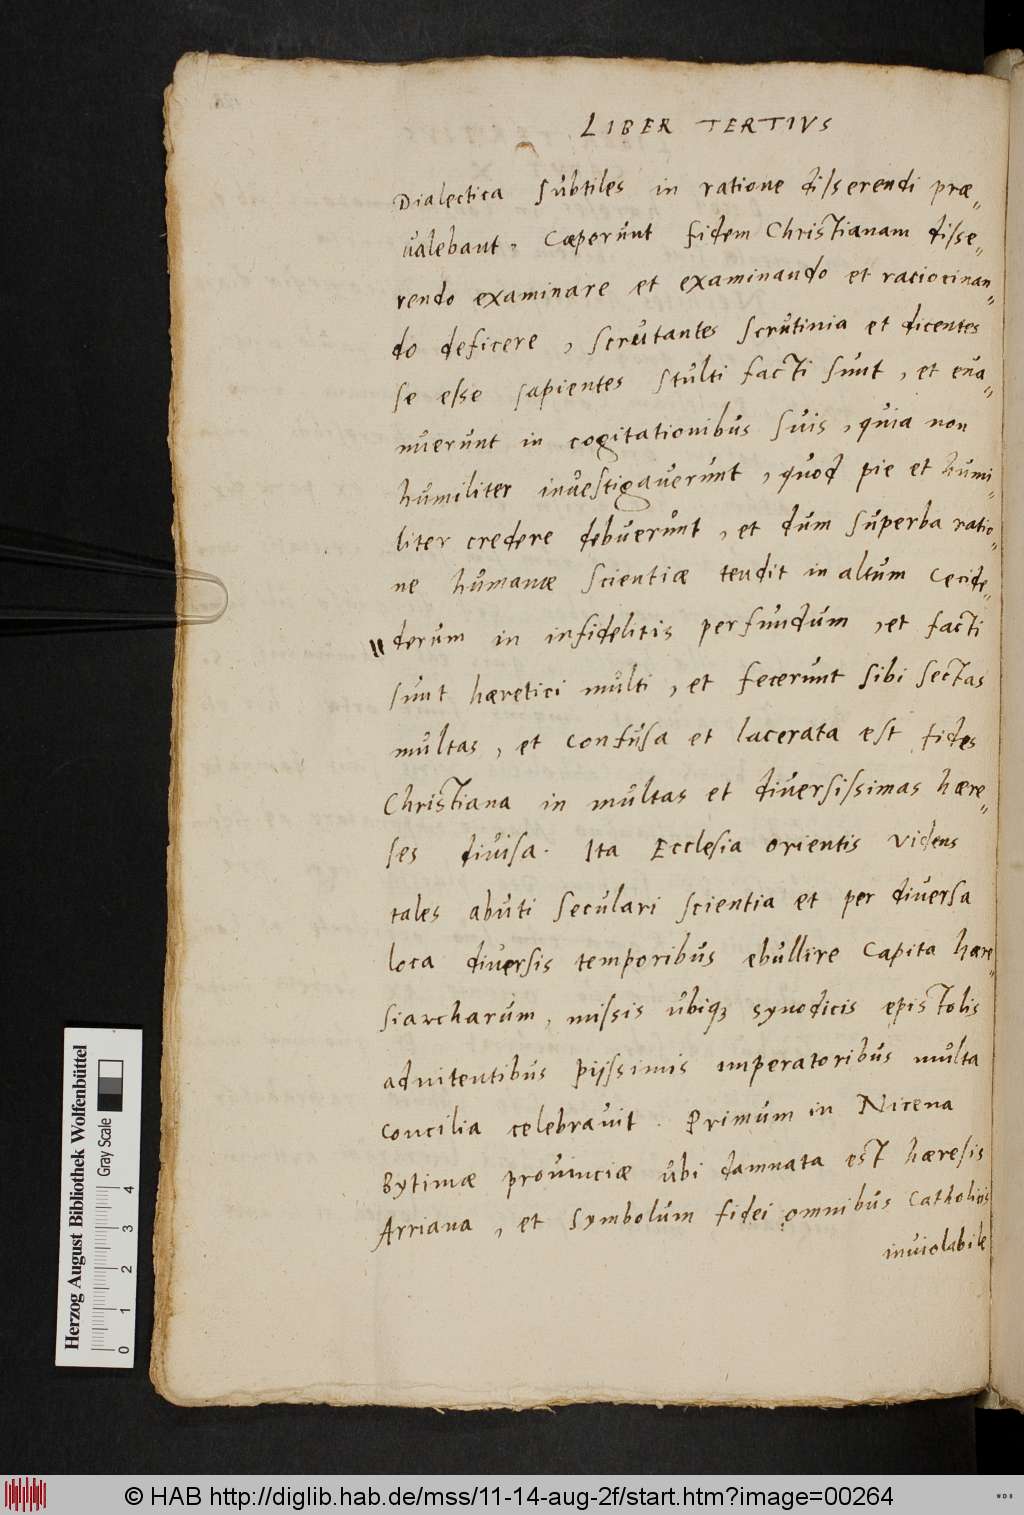 LIBER TERTIVS
Dialectica subtiles in ratione disserendi præ„
valebant, cæperunt fidem Christianam disse„
rendo examinare et examinando et raciocinan„
do deficere, scrutantes scrutinia et dicentes
se esse sapientes stulti facti sunt, et eua„
nuerunt in cogitationibus suis, quia non
humiliter investigaverunt, quod pie et humi„
liter credere debuerunt, et dum superba ratio„
ne humanæ scientiæ tendit in altum cecide„
derum in infidelitis perfundum, et facti
sunt hæretici multi, et fecerunt sibi sectas
multas, et confusa et lacerata est fides
Christiana in multas et diversissimas hære„
ses divisa. Ita Ecclesia orientis videns
tales abuti seculari scientia et per diversa
loca diversis temporibus ebullire capita hære„
siarcharum, missis ubiqꝫ synodicis epistolis
adnitentibus pijssimis imperatoribus multa
concilia celebravit. Primum in Nicena
Bytinæ provinciæ ubi damnata est hæresis
Arriana, et symbolum fidei omnibus catholiis
inviolabile
Herzog August Bibliothek Wolfenbüttel
Gray Scale
0 1 2 3 4
© HAB http://diglib.hab.de/mss/11-14-aug-2f/start.htm?image=00264